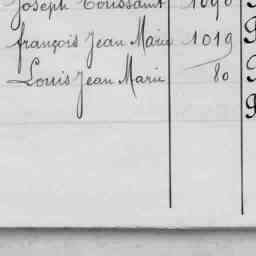 Joseph Toussaint 1090
françois Jean Marie 1019
Louis Jean Marie 80